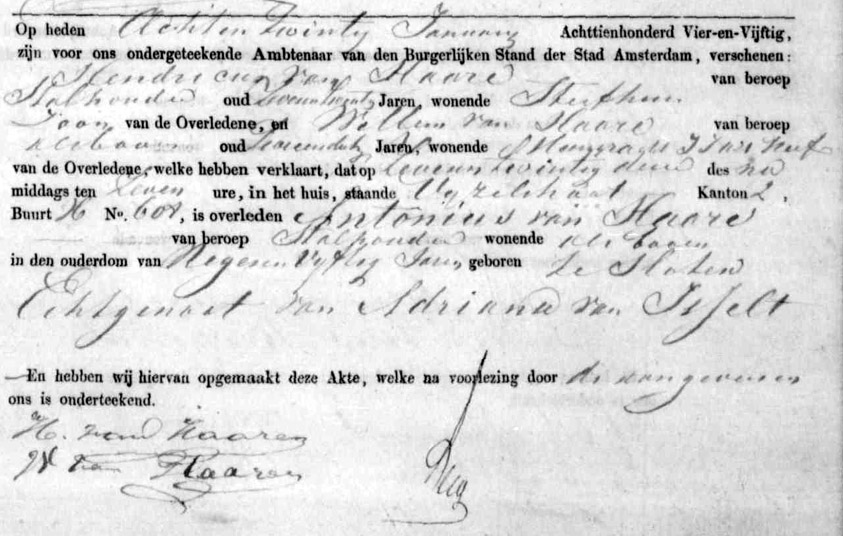 Op heden Acht en twintig January Achttienhonderd Vier-en-Vijftig,
zijn voor ons ondergeteekende Ambtenaar van den Burgerlijken Stand der Stad Amsterdam, verschenen:
Hendricus van Haare van beroep
Stalhouder oud Jaren, wonende
Zoon van de Overledene, en Willem van Haare van beroep
als boven oud Jaren, wonende
van de Overledene, welke hebben verklaart, dat op Zeven en twintig dezer des na
middags ten Zeven ure, in het huis, staande Vyzelstraat Kanton 2,
Buurt H No. 608, is overleden Antonius van Haare
van beroep Stalhouder wonende als boven
in den ouderdom van Negen en Vyftig Jaren geboren te Sloten
Echtgenoot van Adriana van Isselt
En hebben wij hiervan opgemaakt deze Akte, welke na voorlezing door de aangevers en
ons is onderteekend.
H. van Haaren
W van Haaren